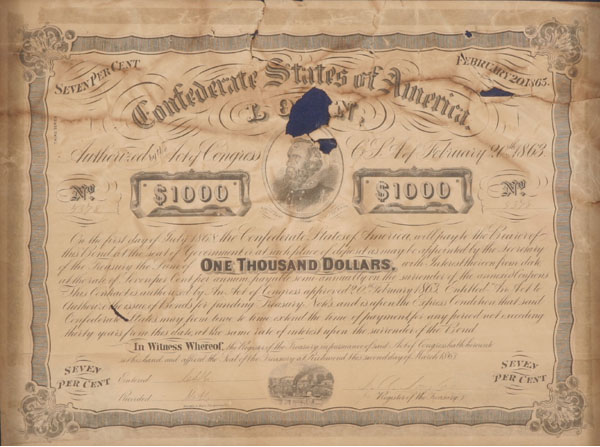 SEVEN PER CENT.
FEBRUARY 20, 1863.
Confederate States of America.
LOAN,
Authorized by the Act of Congress C.S.A. of February 20th 1863.
No.
$1000
$1000
No.
On the first day of July 1868, the Confederate States of America, will pay to the Bearer of
this Bond at the seat of Government or at such place of deposit as may be appointed by the Secretary
of the Treasury the Sum of ONE THOUSAND DOLLARS, with Interest thereon from date
at the rate of Seven per Cent per annum, payable semi-annually on surrender of the annexed Coupons
This Contract is authorized by the Act of Congress approved 20th February 1863 Entitled An Act to
authorize the issue of Bonds for funding Treasury Notes and is upon the Express Condition that said
Confederate States may from time to time extend the time of payment for any period not exceeding
thirty years from this date, at the same rate of interest upon the surrender of the Bond
In Witness Whereof, the Register of the Treasury in pursuance of said Act of Congress hath hereunto
set his hand and affixed the Seal of the Treasury at Richmond this second day of March 1863
SEVEN PER CENT
Entered
Recorded
Register of the Treasury
SEVEN PER CENT